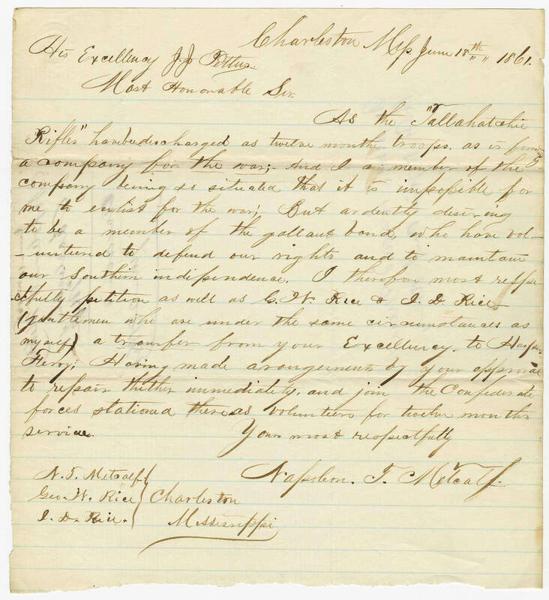 Charleston Mip June 18th " " 1861.
His Excellency J. J. Pettus.
Most Honorable Sir
As the "Tallahatchie
Rifles" have been discharged as twelve months troops. as is
a company for the war; And I a member of the
company being so situated that it is impossible for
me to enlist for the war; But ardently desiring
to be a member of the gallant band, who have vol-
-untiered to defend our rights and to maintain
our Southern independence. I therefore most respe
-ctfully petition as well as G. W. Rice & I. D. Rice
(gentlemen who are under the same circumstances as
myself) a transfer from your Excellency. to Harpers
Ferry; Having made arrangements by your approval
to repair thither immediately. and join the Confederate
forces stationed there as volunteers for twelve months
service.
Yours most respectfully
Napoleon. T. Metcalf.
N. T. Metcalf
Geo. W. Rice
I. D. Rice.
Charleston
Mississippi